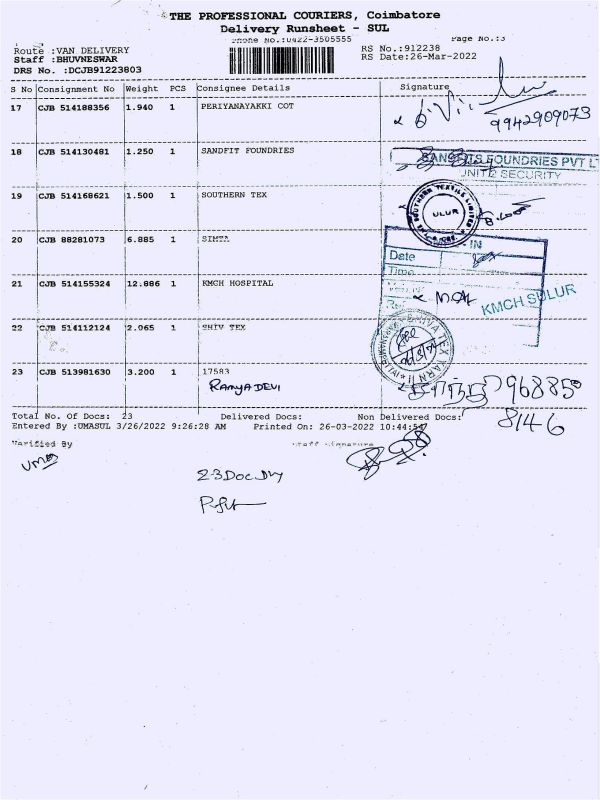 THE PROFESSIONAL COURIERS, Coimbatore
Delivery Runsheet - SUL
Phone No.:0422-3505555 Page No.:3
Route :VAN DELIVERY RS No.:912238
Staff :BHUVNESWAR RS Date:26-Mar-2022
DRS No. :DCJB91223803
S No Consignment No Weight PCS Consignee Details Signature
17 CJB 514188356 1.940 1 PERIYANAYAKKI COT
9942909073
18 CJB 514130481 1.250 1 SANDFIT FOUNDRIES
SANDFITS FOUNDRIES PVT L
UNIT 2 SECURITY
19 CJB 514168621 1.500 1 SOUTHERN TEX
SOUTHERN TEXTILE LIMITED
ULUR
20 CJB 88281073 6.885 1 SIMTA
IN
Date
Time
21 CJB 514155324 12.886 1 KMCH HOSPITAL
KMCH SULUR
22 CJB 514112124 2.065 1 SHIV TEX
SHIVA TEX YARN
23 CJB 513981630 3.200 1 17583
RAMYA DEVI
96885
8146
Total No. Of Docs: 23 Delivered Docs: Non Delivered Docs:
Entered By :UMASUL 3/26/2022 9:26:28 AM Printed On: 26-03-2022 10:44:54
Varified By Staff Signature
UMA
23 Doc Dly